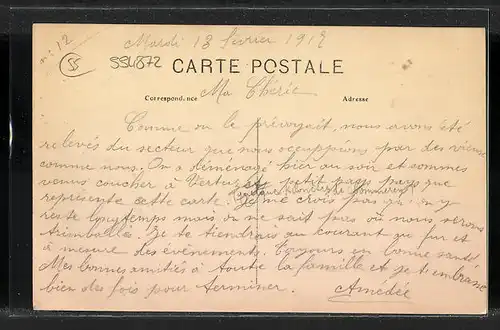 n: 12
Mardi 18 février 1919
55
554872
CARTE POSTALE
Correspondance
Adresse
Ma Chérie
Comme on le prévoyait, nous avons été
relevés du secteur que nous occuppions par des vieux
comme nous. On a déménagé hier au soir et sommes
venus coucher à petit pays que
représente cette carte. Je ne crois pas qu'on y
reste longtemps mais on ne sait pas où nous serons
trimballés. Je te tiendrais au courant au fur et
à mesure des événements. Toujours en bonne santé
Mes bonnes amitiés à toute la famille et je t'embrasse
bien des fois pour terminer. Amédée